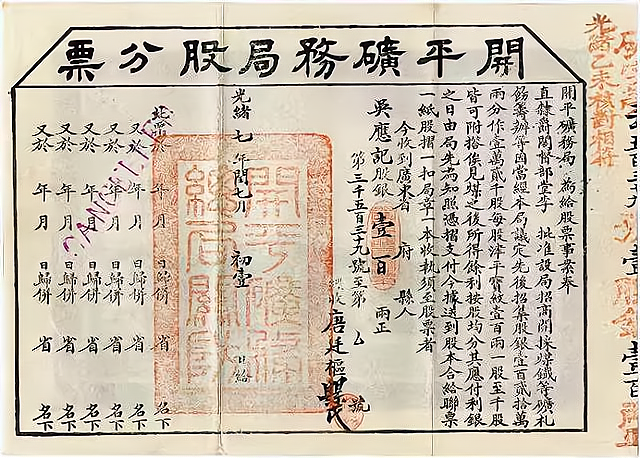 開平礦務局股分票
光緒乙未核對相符
開平礦務局 為給股票事案奉
直隸爵閣督部堂李 批准設局招商開採煤鐵等礦札
飭籌辦等因當經本局議定先後招集股銀壹百貳拾萬
兩分作壹萬貳千股每股津平寶紋壹百兩一股至千股
皆可附搭俟見煤之後所得餘利按股均分其應付利銀
之日由局先為知照憑摺支付今據送到股本合給聯票
一紙股摺一扣局章一本收執須至股票者
今收到廣東省 府 縣人
吳應記股銀壹百兩正
第三千五百三十九號至第 號
唐廷樞
光緒七年閏七月初壹日給
此票於 年 月 日歸併 省 名下
又於 年 月 日歸併 省 名下
又於 年 月 日歸併 省 名下
又於 年 月 日歸併 省 名下
又於 年 月 日歸併 省 名下
又於 年 月 日歸併 省 名下
CANCELLED